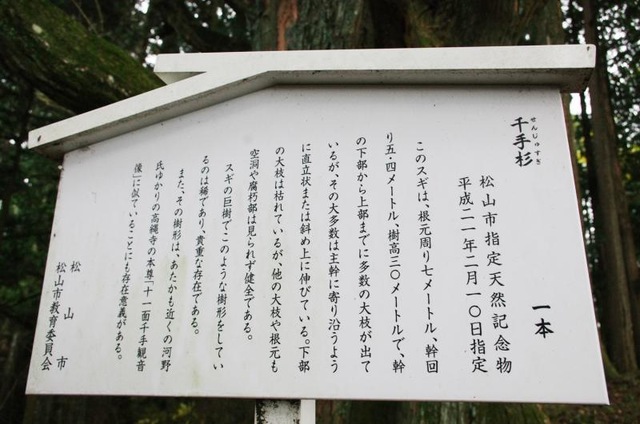 せんじゅすぎ
千手杉
一本
松山市指定天然記念物
平成二一年二月一〇日指定
このスギは、根元周り七メートル、幹回
り五・四メートル、樹高三〇メートルで、幹
の下部から上部までに多数の大枝が出て
いるが、その大多数は主幹に寄り沿うよう
に直立状または斜め上に伸びている。下部
の大枝は枯れているが、他の大枝や根元も
空洞や腐朽部は見られず健全である。
スギの巨樹でこのような樹形をしてい
るのは稀であり、貴重な存在である。
また、その樹形は、あたかも近くの河野
氏ゆかりの高縄寺の本尊「十一面千手観音
像」に似ていることにも存在意義がある。
松山市
松山市教育委員会